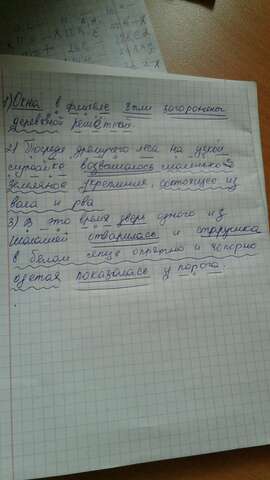 1) Окна в флигеле были загорожены
деревяной решёткой.
2) Посреди дремучего леса на узкой
лужайке возвышалось маленькое
земляное укрепление, состоящее из
вала и рва
3) В это время дверь одного из
шалашей отварилась и старушка
в белом чепце опрятно и чопорно
одетая показалась у порога.